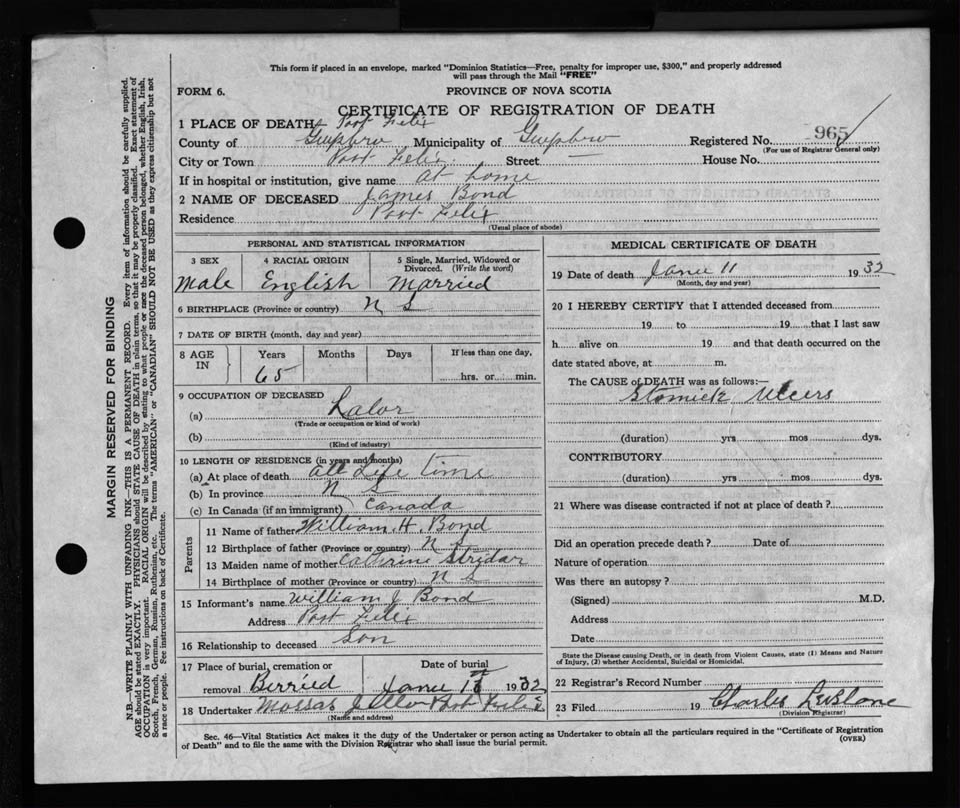 This form if placed in an envelope, marked "Dominion Statistics—Free, penalty for improper use, $300," and properly addressed
will pass through the Mail "FREE"
FORM 6.
PROVINCE OF NOVA SCOTIA
CERTIFICATE OF REGISTRATION OF DEATH
1 PLACE OF DEATH Port Felix
County of Guysbro Municipality of Guysbro Registered No. 965
(For use of Registrar General only)
City or Town Port Felix Street — House No.
If in hospital or institution, give name at home
2 NAME OF DECEASED James Bond
Residence Port Felix
(Usual place of abode)
PERSONAL AND STATISTICAL INFORMATION
3 SEX 4 RACIAL ORIGIN 5 Single, Married, Widowed or
Divorced. (Write the word)
Male English Married
6 BIRTHPLACE (Province or country) N S
7 DATE OF BIRTH (month, day and year)
8 AGE IN Years Months Days If less than one day,
65 hrs. or min.
9 OCCUPATION OF DECEASED
(a) Labor
(Trade or occupation or kind of work)
(b)
(Kind of industry)
10 LENGTH OF RESIDENCE (in years and months)
(a) At place of death all Life time
(b) In province N S
(c) In Canada (if an immigrant) Canada
Parents
11 Name of father William H. Bond
12 Birthplace of father (Province or country) N S
13 Maiden name of mother
14 Birthplace of mother (Province or country) N S
15 Informant's name William J Bond
Address Port Felix
16 Relationship to deceased Son
17 Place of burial, cremation or Date of burial
removal Berried 1932
18 Undertaker Port Felix
(Name and address)
MEDICAL CERTIFICATE OF DEATH
19 Date of death Janu 11 1932
(Month, day and year)
20 I HEREBY CERTIFY that I attended deceased from
19 to 19 that I last saw
h alive on 19 and that death occurred on the
date stated above, at m.
The CAUSE of DEATH was as follows:—
Stomick Ulcers
(duration) yrs mos dys.
CONTRIBUTORY
(duration) yrs mos dys.
21 Where was disease contracted if not at place of death?
Did an operation precede death? Date of
Nature of operation
Was there an autopsy?
(Signed) M.D.
Address
Date
State the Disease causing Death, or in death from Violent Causes, state (1) Means and Nature
of Injury, (2) whether Accidental, Suicidal or Homicidal.
22 Registrar's Record Number
23 Filed 19 Charles
(Division Registrar)
Sec. 46—Vital Statistics Act makes it the duty of the Undertaker or person acting as Undertaker to obtain all the particulars required in the "Certificate of Registration
of Death" and to file the same with the Division Registrar who shall issue the burial permit.
(OVER)
MARGIN RESERVED FOR BINDING
N.B.—WRITE PLAINLY WITH UNFADING INK—THIS IS A PERMANENT RECORD. Every item of information should be carefully supplied.
AGE should be stated EXACTLY. PHYSICIANS should STATE CAUSE OF DEATH in plain terms, so that it may be properly classified. Exact statement of
OCCUPATION is very important. RACIAL ORIGIN will be described by stating to what people or race the deceased person belonged, whether English, Irish,
Scotch, French, German, Russian, Ruthenian, etc. The terms "AMERICAN" or "CANADIAN" SHOULD NOT BE USED as they express citizenship but not
a race or people. See instructions on back of Certificate.